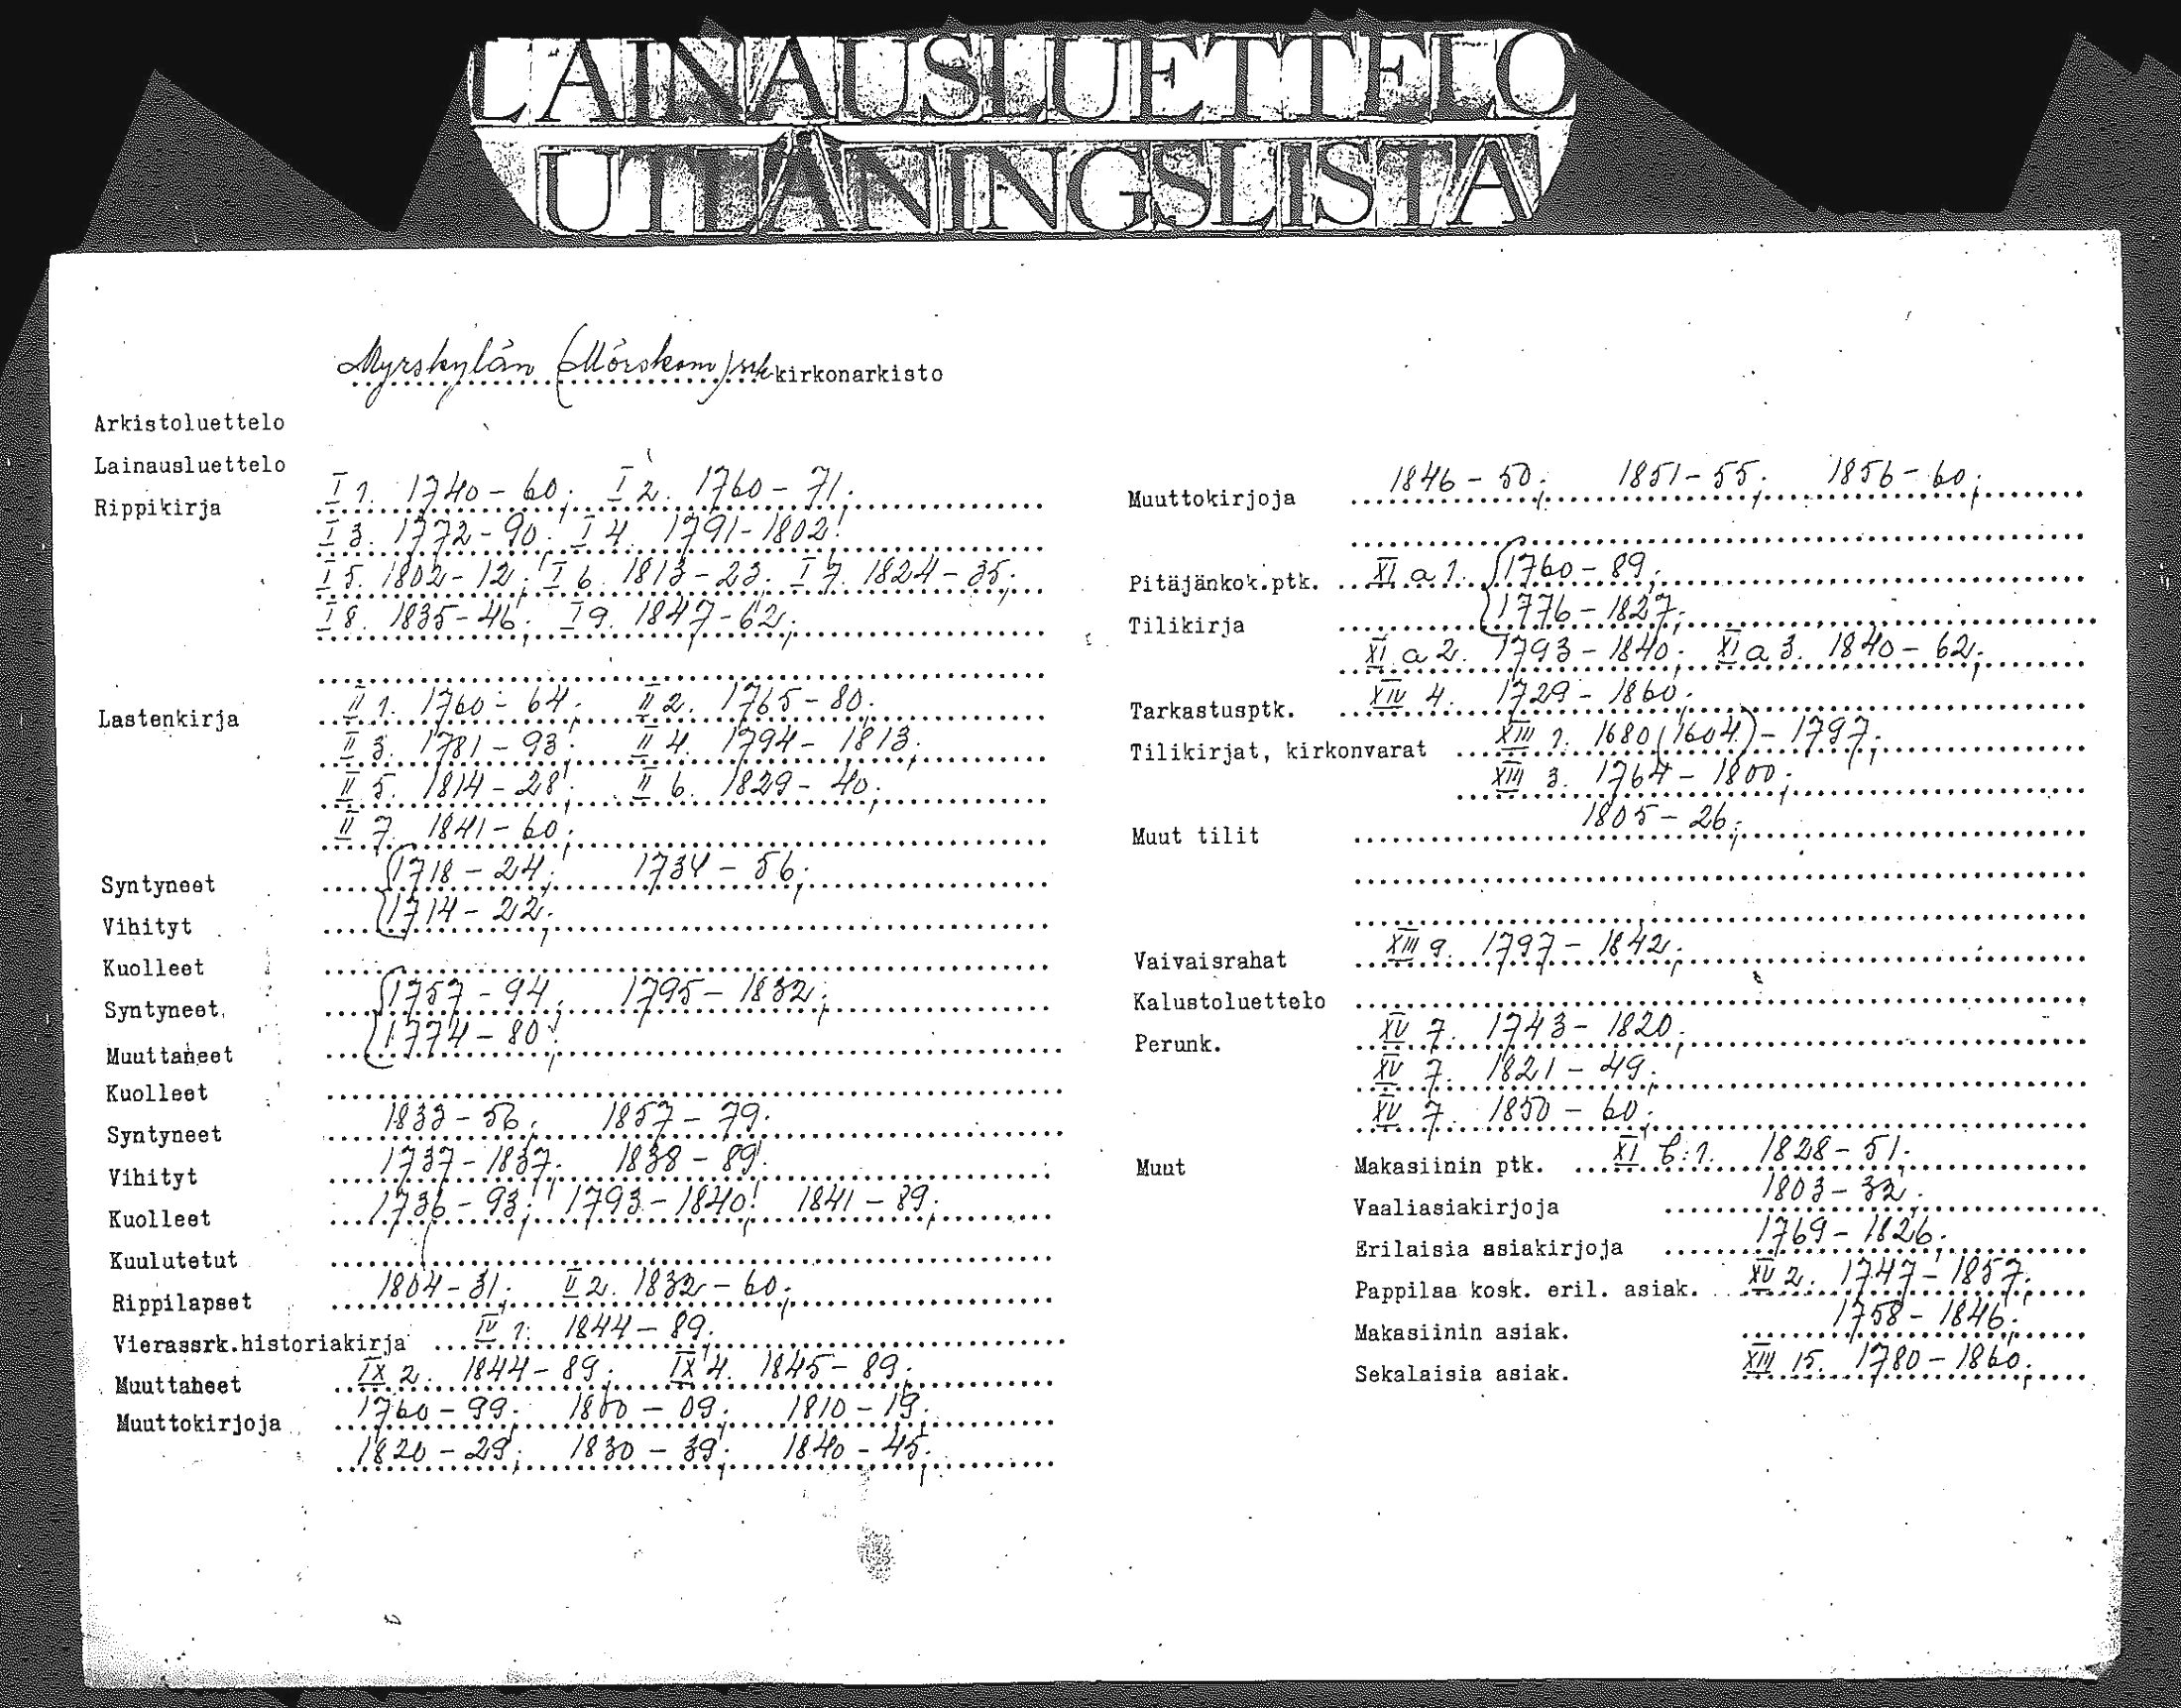 LAINAUSLUETTELO
UTLÅNINGSLISTA
Myrskylän (Mörskom) srk kirkonarkisto
Arkistoluettelo
Lainausluettelo
Rippikirja I 1. 1740-60; I 2. 1760-71;
I 3. 1772-90; I 4. 1791-1802;
I 5. 1802-12; I 6. 1813-23; I 7. 1824-35;
I 8. 1835-46; I 9. 1847-62;
Lastenkirja II 1. 1760-64; II 2. 1765-80;
II 3. 1781-93; II 4. 1794-1813;
II 5. 1814-28; II 6. 1829-40;
II 7. 1841-60;
Syntyneet 1718-24; 1734-56;
Vihityt 1714-22;
Kuolleet
Syntyneet 1757-94; 1795-1832;
Muuttaneet 1774-80;
Kuolleet
Syntyneet 1833-56; 1857-79;
Vihityt 1737-1837; 1838-89;
Kuolleet 1736-93; 1793-1840; 1841-89;
Kuulutetut
Rippilapset 1804-31; II 2. 1832-60;
Vierassrk.historiakirja IV 1. 1844-89;
Muuttaneet IX 2. 1844-89; IX 4. 1845-89;
Muuttokirjoja 1760-99; 1800-09; 1810-19;
1820-29; 1830-39; 1840-45;
Muuttokirjoja 1846-50; 1851-55; 1856-60;
Pitäjänkok.ptk. XI a 1. 1760-89;
Tilikirja 1776-1827;
XI a 2. 1793-1840; XI a 3. 1840-62;
Tarkastusptk. XIV 4. 1729-1860;
Tilikirjat, kirkonvarat XIII 1. 1680(1604)-1797;
XIII 3. 1764-1800;
Muut tilit 1805-26;
Vaivaisrahat XIII 9. 1797-1842;
Kalustoluettelo
Perunk. XV 7. 1743-1820;
XV 7. 1821-49;
XV 7. 1850-60;
Muut Makasiinin ptk. XI b:1. 1828-51;
Vaaliasiakirjoja 1803-32;
Erilaisia asiakirjoja 1769-1826;
Pappilaa kosk. eril. asiak. XV 2. 1747-1857;
Makasiinin asiak. 1758-1846;
Sekalaisia asiak. XIII 15. 1780-1860;